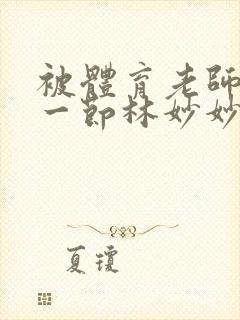 被體育老師
一節林妙妙
夏瓊